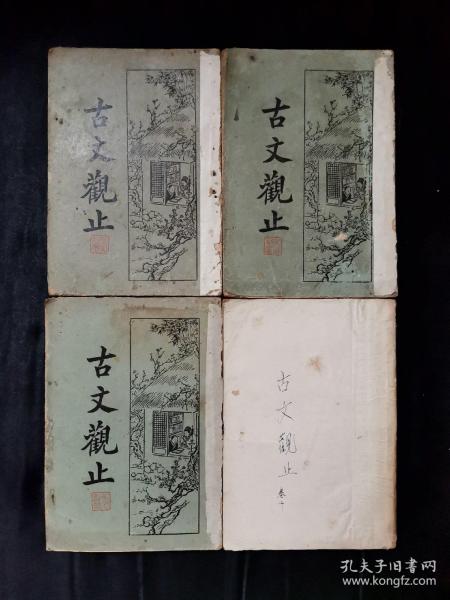 古文觀止
古文觀止
古文觀止
古文觀止
孔夫子旧書网
www.kongfz.com